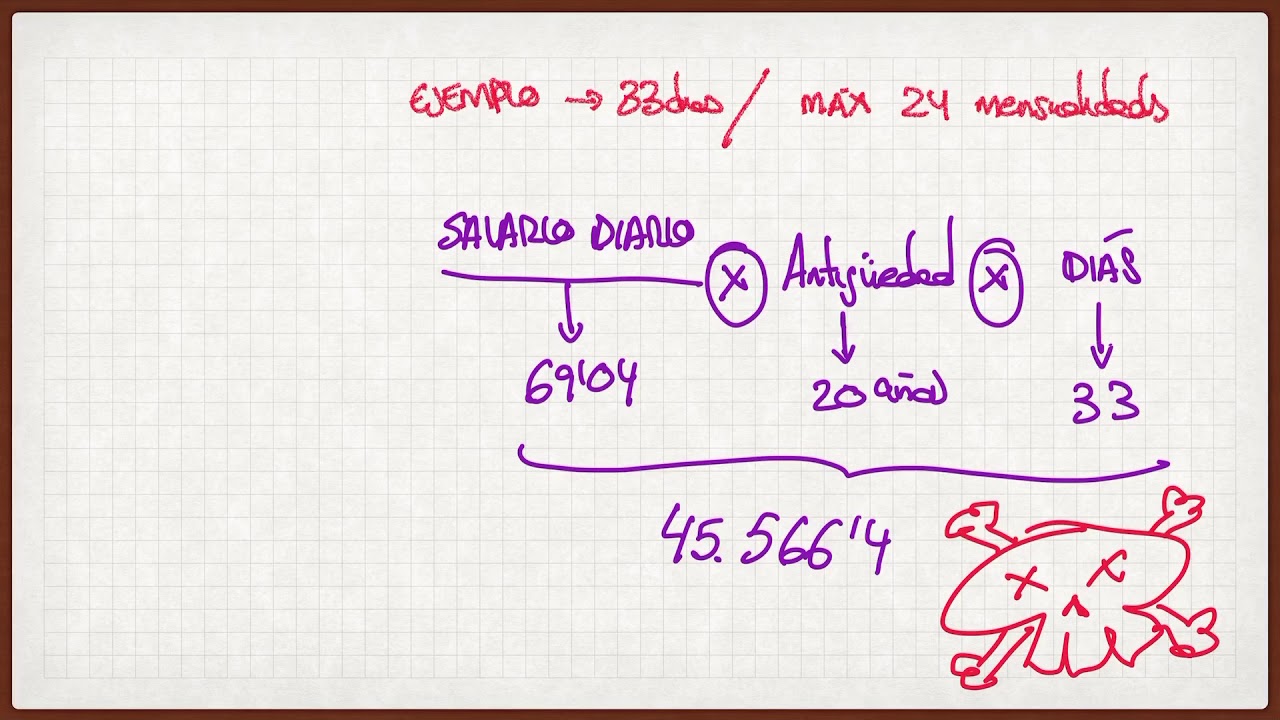 EJEMPLO → 33 días / MÁX 24 mensualidades
SALARIO DIARIO X Antigüedad X DÍAS
69'04 20 años 33
45.566'4